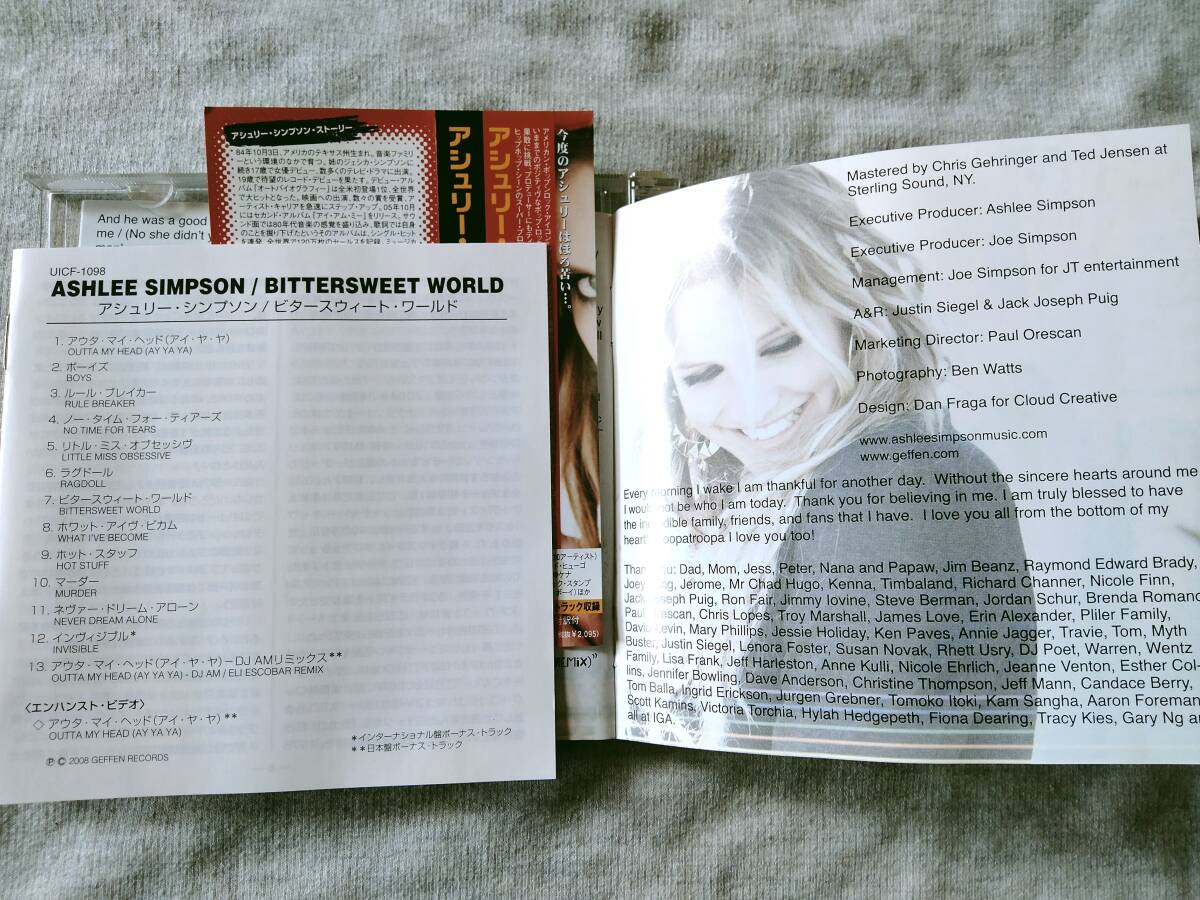 UICF-1098
ASHLEE SIMPSON / BITTERSWEET WORLD
アシュリー・シンプソン / ビタースウィート・ワールド
1. アウタ・マイ・ヘッド(アイ・ヤ・ヤ)
OUTTA MY HEAD (AY YA YA)
2. ボーイズ
BOYS
3. ルール・ブレイカー
RULE BREAKER
4. ノー・タイム・フォー・ティアーズ
NO TIME FOR TEARS
5. リトル・ミス・オブセッシヴ
LITTLE MISS OBSESSIVE
6. ラグドール
RAGDOLL
7. ビタースウィート・ワールド
BITTERSWEET WORLD
8. ホワット・アイヴ・ビカム
WHAT I'VE BECOME
9. ホット・スタッフ
HOT STUFF
10. マーダー
MURDER
11. ネヴァー・ドリーム・アローン
NEVER DREAM ALONE
12. インヴィジブル*
INVISIBLE
13. アウタ・マイ・ヘッド(アイ・ヤ・ヤ) – DJ AMリミックス**
OUTTA MY HEAD (AY YA YA) - DJ AM / ELI ESCOBAR REMIX
〈エンハンスト・ビデオ〉
◇ アウタ・マイ・ヘッド(アイ・ヤ・ヤ)**
OUTTA MY HEAD (AY YA YA)
*インターナショナル盤ボーナス・トラック
**日本盤ボーナス・トラック
℗ © 2008 GEFFEN RECORDS
And he was a good
me / (No she didn't
アシュリー・シンプソン・ストーリー
84年10月3日、アメリカのテキサス州生まれ。音楽ファミリ
ーという環境のなかで育つ。姉のジェシカ・シンプソンに
続き17歳で女優デビュー、数多くのテレビ・ドラマに出演。
19歳で待望のレコード・デビューを果たす。デビュー・アル
バム『オートバイオグラフィー』は全米初登場1位、全世界
で大ヒットとなった。映画への出演、数々の賞を受賞、ア
ーティスト・キャリアを急速にステップ・アップ。05年10月
にはセカンド・アルバム『アイ・アム・ミー』をリリース。サウ
ンド面では80年代音楽の感覚を盛り込み、歌詞では自身
のことを掘り下げたというそのアルバムは、シングル・ヒット
を連発、全世界で120万枚のセールスを記録。
アシュリー・
アシュリー・
今度のアシュリーはほろ苦い…。
トラック収録
訳付
¥2,095)
REMiX)"
Mastered by Chris Gehringer and Ted Jensen at
Sterling Sound, NY.
Executive Producer: Ashlee Simpson
Executive Producer: Joe Simpson
Management: Joe Simpson for JT entertainment
A&R: Justin Siegel & Jack Joseph Puig
Marketing Director: Paul Orescan
Photography: Ben Watts
Design: Dan Fraga for Cloud Creative
www.ashleesimpsonmusic.com
www.geffen.com
Every morning I wake I am thankful for another day. Without the sincere hearts around me
I would not be who I am today. Thank you for believing in me. I am truly blessed to have
the incredible family, friends, and fans that I have. I love you all from the bottom of my
heart! oopatroopa I love you too!
Thank you: Dad, Mom, Jess, Peter, Nana and Papaw, Jim Beanz, Raymond Edward Brady,
Joey King, Jerome, Mr Chad Hugo, Kenna, Timbaland, Richard Channer, Nicole Finn,
Jack Joseph Puig, Ron Fair, Jimmy Iovine, Steve Berman, Jordan Schur, Brenda Romano
Paul Orescan, Chris Lopes, Troy Marshall, James Love, Erin Alexander, Pliler Family,
David Levin, Mary Phillips, Jessie Holiday, Ken Paves, Annie Jagger, Travie, Tom, Myth
Buster, Justin Siegel, Lenora Foster, Susan Novak, Rhett Usry, DJ Poet, Warren, Wentz
Family, Lisa Frank, Jeff Harleston, Anne Kulli, Nicole Ehrlich, Jeanne Venton, Esther Col-
lins, Jennifer Bowling, Dave Anderson, Christine Thompson, Jeff Mann, Candace Berry,
Tom Balla, Ingrid Erickson, Jurgen Grebner, Tomoko Itoki, Kam Sangha, Aaron Foreman
Scott Kamins, Victoria Torchia, Hylah Hedgepeth, Fiona Dearing, Tracy Kies, Gary Ng an
all at IGA.